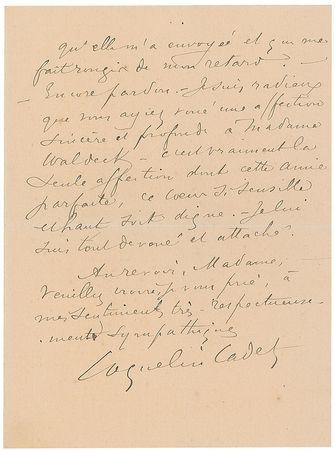 qu'elle m'a envoyée et qui me
fait rougir de mon retard. —
— Encore pardon. — Je suis radieux
que vous ayiez voué une affection
sincère et profonde à Madame
Waldeck — c'est vraiment la
seule affection dont cette amie
parfaite, ce cœur si sensible
et haut soit digne. — Je lui
suis tout dévoué et attaché.
Au revoir, Madame,
Veuillez croire, je vous prie, à
mes sentiments très-respectueuse-
ment sympathiques
Coquelin Cadet